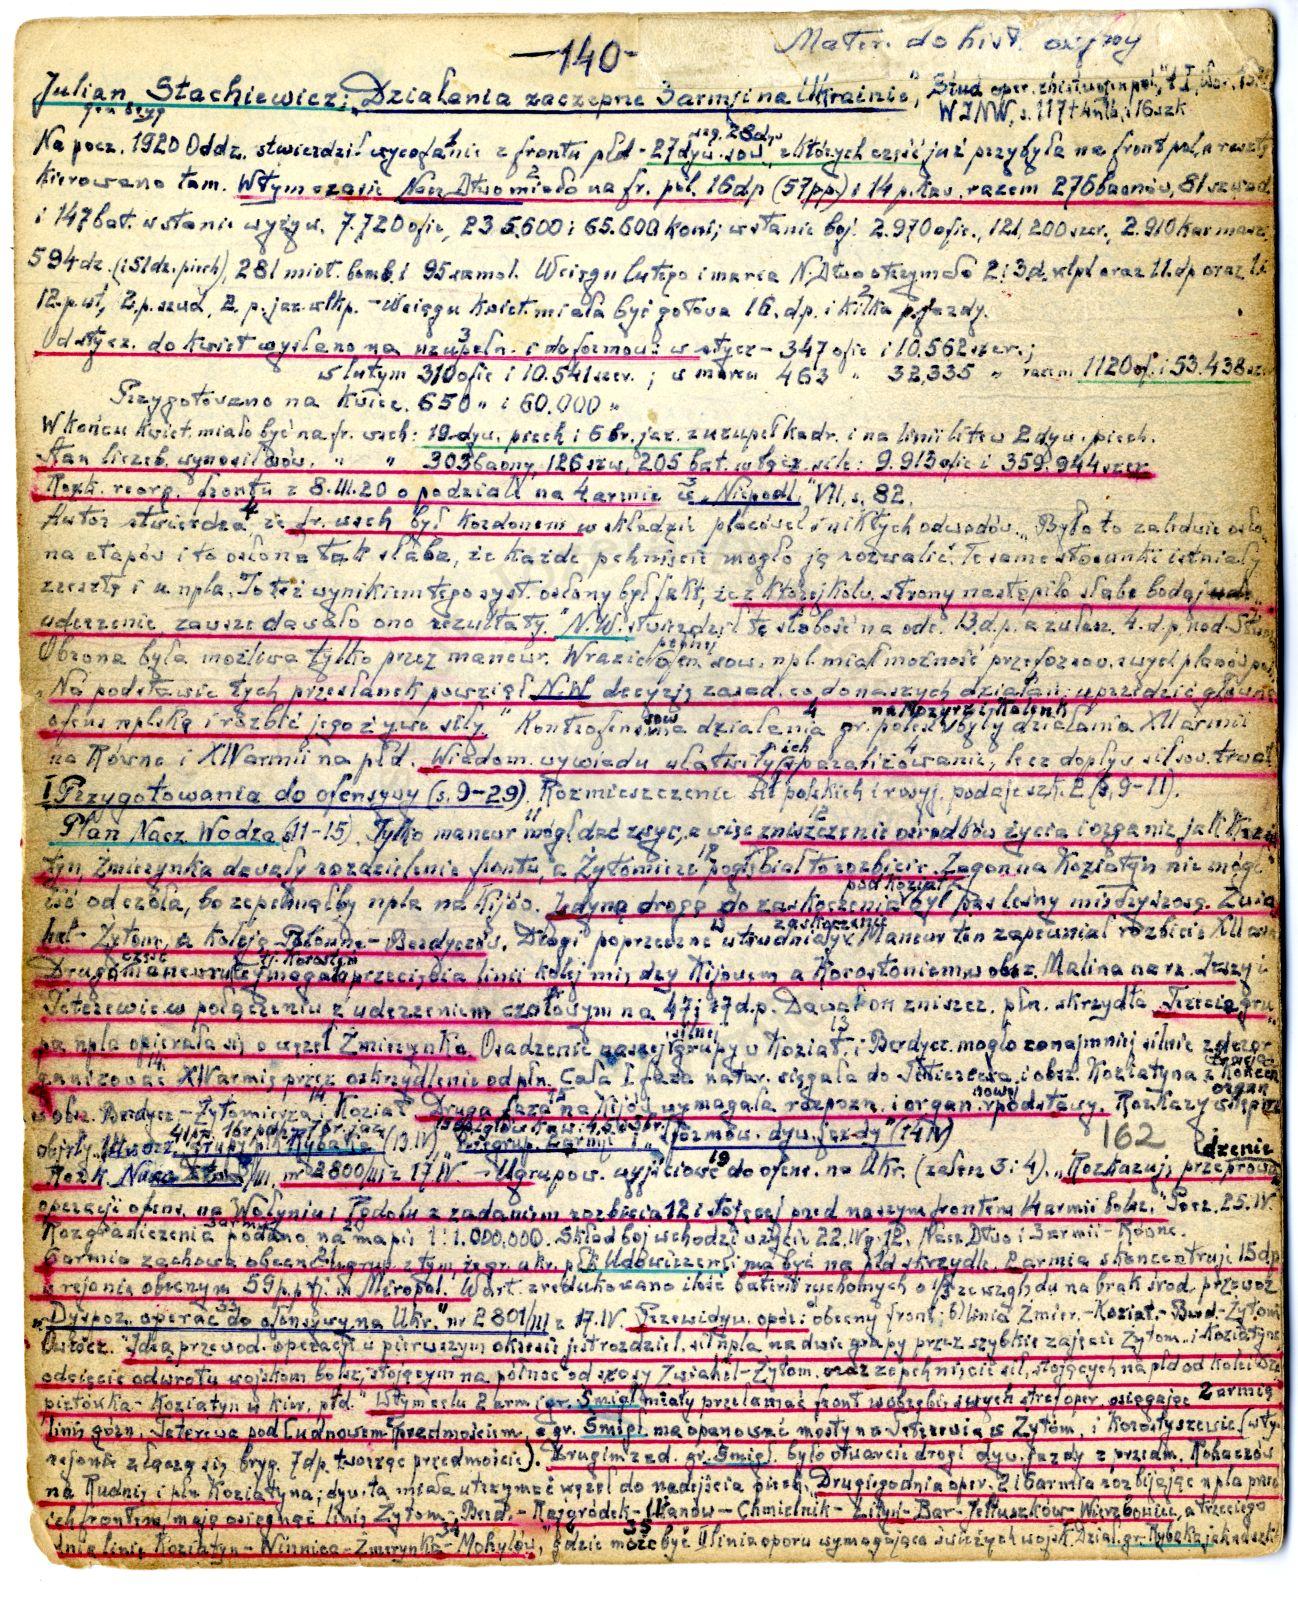 -140-
Mater. do hist. wojny
Julian Stachiewicz: "Działania zaczepne 3 armji na Ukrainie", Stud. oper. z hist. wojen pol., t. I, War.
gen bryg
WINW, s. 117 + 16 szk
Na pocz. 1920 Oddz. stwierdził wycofanie z frontu płd - 27 dyw. sow, z których część już przybyła na front pol, a resztę
kierowano tam. W tym czasie Nacz. Dtwo miało na fr. pol. 16 dp (57 pp) i 14 p. kaw. razem 276 baonów, 81 szwad
i 147 bat. w stanie wyżyw. 7.720 ofic, 235.600 i 65.600 koni; w stanie boj. 2.970 ofic., 121.200 szer., 2.910 kar masz.
594 dz. (i 51 dz. piech), 281 miot. bomb i 95 samol. W ciągu lutego i marca N. Dtwo otrzymało 2 i 3 d. wlpl oraz 11. dp oraz
12. p. uł, 2. p. szwol, 2. p. jaz. wlkp. - W ciągu kwiet. miała być gotowa 16. dp. i kilka p. jazdy.
Od stycz. do kwiet wysłano na uzupełn. i do formow: w stycz - 347 ofic i 10.562 szer.;
w lutym 310 ofic i 10.541 szer.; w marcu 463 " 32.335 " razem 1120 of. i 53.438
Przygotowano na kwiec. 650 " i 60.000 "
W końcu kwiet. miało być na fr. wsch: 19 dyw. piech i 6 br. jaz. z uzupeł kadr. i na linii litew 2 dyw. piech.
Stan liczeb. wynosił " " 303 baony, 126 szw, 205 bat. w łącz. sile: 9.913 ofic i 359.944 szer
Rozk. reorg. frontu z 8.III.20 o podziale na 4 armie w "Niepodl." VII, s. 82.
Autor stwierdza, że fr. wsch był kordonem w składzie placówek i nikłych odwodów. "Było to zaledwie osło-
na etapów i to osłona tak słaba, że każde pchnięcie mogło ją rozwalić. Te same stosunki istniały
zresztą i u npla. Toteż wynikiem tego syst. osłony był fakt, że z którejkolw. strony nastąpiło słabe bodaj
uderzenie zawsze dawało ono rezultaty." N.W. stwierdził tę słabość na odc. 13. d.p. a zwłasz. 4. d.p. nad
Obrona była możliwa tylko przez manewr. W razie ofen. sow. npl. miał możność przeforsow. swych planów
"Na podstawie tych przesłanek powziął N.W. decyzję zasad. co do naszych działań: uprzedzić główną
na Mozyrz i Kalenk.
ofens nplską i rozbić jego żywe siły." działania gr. były działania XII armii
na Równe i XIV armii na płd. Wiadom. wywiadu ułatwiły ich sparaliżowanie, lecz dopływ sił sow. trwał
I Przygotowania do ofensywy (s. 9-29). Rozmieszczenie sił polskich i rosyj. podaje szk. 2 (s. 9-11).
Plan Nacz. Wodza (11-15). Tylko manewr mógł dać zwyc, a więc zniszczenie ośrodków życia i organiz jak
tyn, Żmerynka dawały rozdzielenie frontu, a Żytomierz pogłębiał to rozbicie. Zagon na Koziatyn nie mógł
iść od czoła, bo zepchnąłby npla na Kijów. Jedyną drogą do zaskoczenia był pas leśny między szosą Zwia-
hel - Żytom, a koleją Równe - Berdyczów. Drogi poprzeczne utrudniały zaskoczenie. Manewr ten zapewniał rozbicie XII arm
Druga część manewru wymagała przecięcia linii kolej między Kijowem a Korosteniem w obsz. Malina na rz. Irszy i
Teterewie w połączeniu z uderzeniem czołowym na 47 i 7 d.p. Dawał on zniszcz. płn. skrzydła. Trzecia gru-
pa npla opierała się o węzeł Żmerynka. Osadzenie naszej silnej grupy w Koziat. i Berdycz. mogło conajmniej silnie zdezor-
ganizować XIV armię przez oskrzydlenie od płn. Cała I faza natar. sięgała do Teterewa i obsz. Koziatyna z
w obsz. Berdycz - Żytomierz i Koziat. Druga faza na Kijów wymagała rozpozn. i organ. nowej podstawy. Rozkazy wstępne
objęły: Utworz. grupy płk Rybaka (13.IV) Przegrup. 2 armji i "Sformow. dyw. jazdy" (14 IV)
162
Rozk. Nacz. /III, nr 2800/III z 17.IV. - Ugrupow. wyjściowe do ofens. na Ukr. (załącz 3 i 4). "Rozkazuję przeprowa-
dzenie
operacji ofens. na Wołyniu i Podolu z zadaniem rozbicia 12 i stojącej przed naszym frontem 14 armii bolsz." Pocz. 25.IV.
Rozgraniczenia podano na mapie 1:1.000.000. Skład boj wchodzi w życie 22.IV g. 12. Nacz. Dtwo i 3 armii - Równe.
6 armia zachowa obecne ugrup. z tym, że gr. ukr. płk Udowiczenki ma być na płd skrzydle. 2 armia skoncentruje 15 dp
w rejonie obecnym 59 p.p. tj. w Miropol. Wart. zredukowano ilość baterii ruchomych o 1/3 ze względu na brak środ. przewoz
"Dyspoz. operac do ofensywy na Ukr." nr 2801/III z 17.IV. Przewidyw. opór: a) obecny front; b) linia Żmier. - Koziat - Berd - Żytom
"Ideą przewod. operacji w pierwszym okresie jest rozdziel. sił npla na dwie grupy przez szybkie zajęcie Żytom. i Koziatyna
odcięcie odwrotu wojskom bolsz, stojącym na północ od szosy Zwiahel - Żytom. oraz zepchnięcie sił, stojących na płd od kolei Sze-
pietówka - Koziatyn w kier. płd." W tym celu 2 arm i gr. Śmigł. miały przełamać front w obrębie swych stref oper. osiągając 2 armią
linię górn. Teterewa pod Cudnowem - Przedmościem, a gr. Śmigł. ma opanować mosty na Teterewie w Żytom. i Korostyszewie (w tym
rejonie złączą się bryg. 7 dp tworząc przedmoście). Drugim zad. gr. Śmigł. było otwarcie drogi dyw. jazdy z przedm. Rohaczów
na Rudnię i płn Koziatyna; dyw. ta miała utrzymać węzeł do nadejścia piech. Drugiego dnia oper. 2 i 6 armia rozbijając npla przed
ich frontem mają osiągnąć linię Żytom - Berd. - Rajgródek - Ułanów - Chmielnik - Lityń - Bar - Jełtuszków - Wierzbowiec, a trzeciego
dnia linię Koziatyn - Winnica - Żmerynka - Mohylów, gdzie może być II linia oporu wymagająca świeżych wojsk. Dział. gr. Rybaka